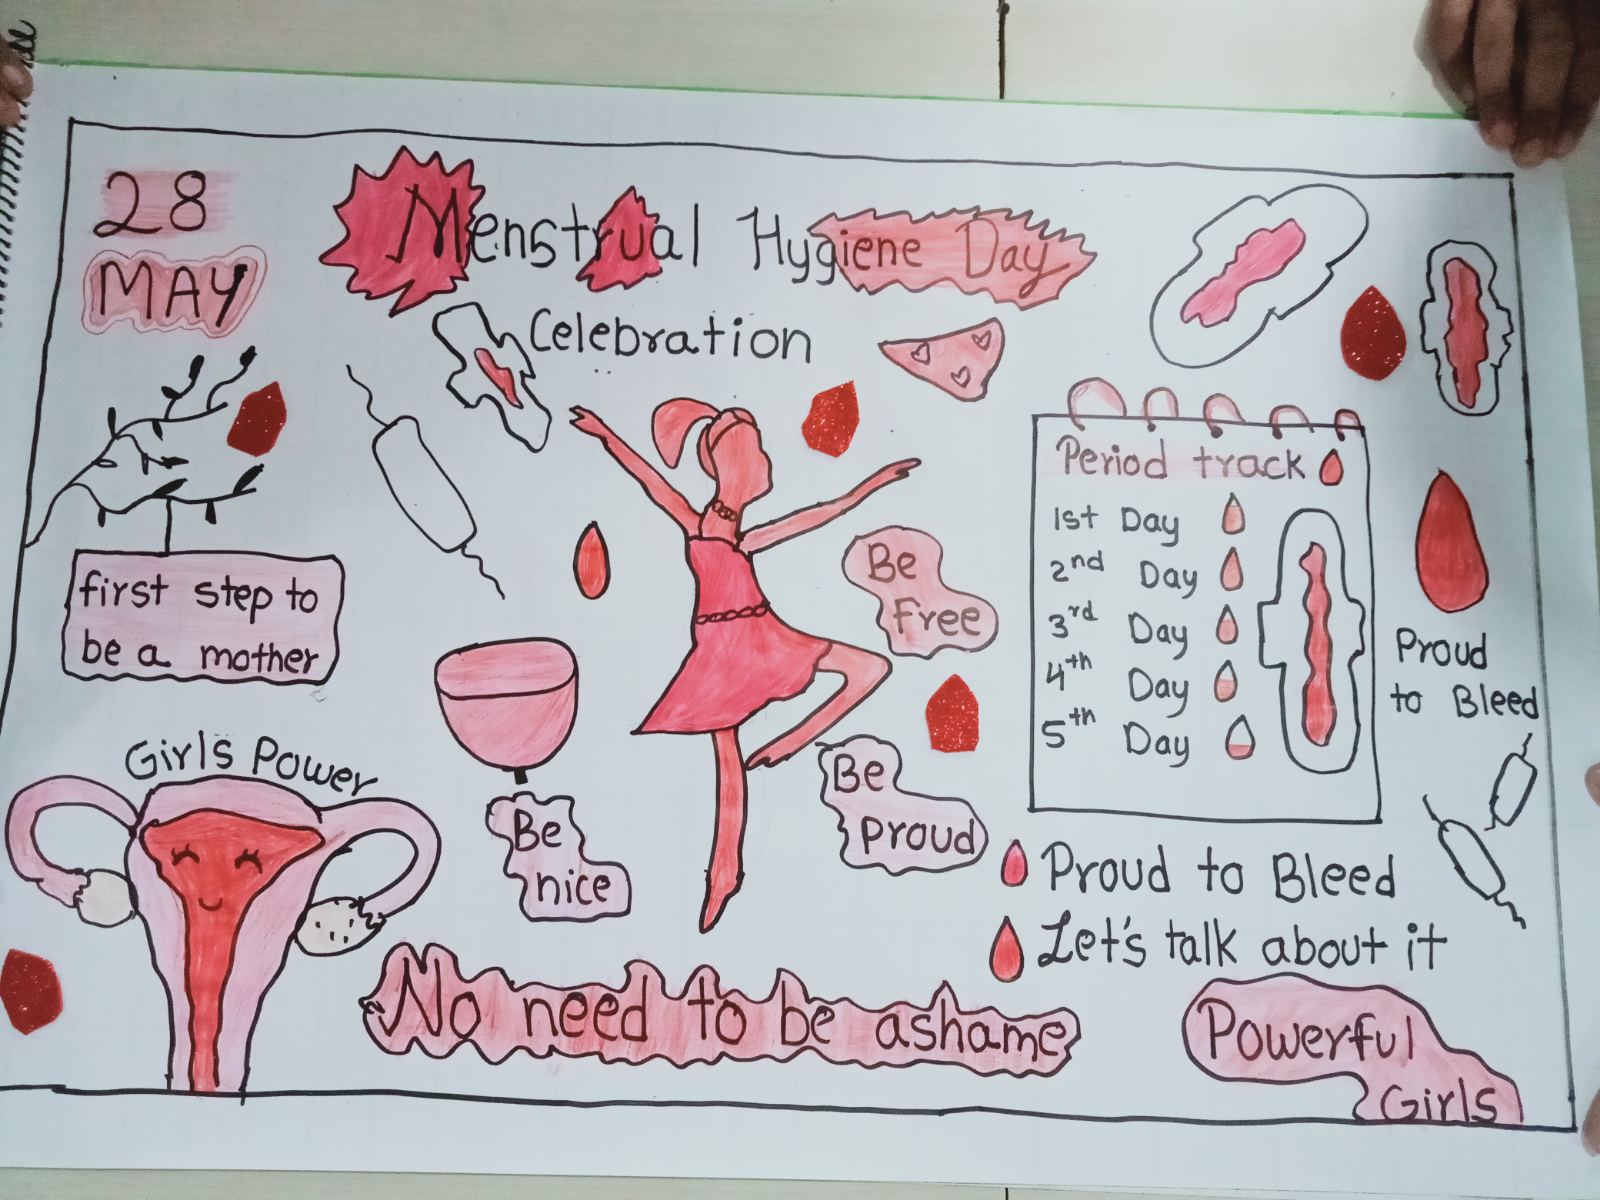 28
MAY
Menstrual Hygiene Day
Celebration
first step to
be a mother
Girls Power
Be
nice
Be
free
Be
Proud
Period track
1st Day
2nd Day
3rd Day
4th Day
5th Day
Proud
to Bleed
Proud to Bleed
Let's talk about it
No need to be ashame
Powerful
Girls